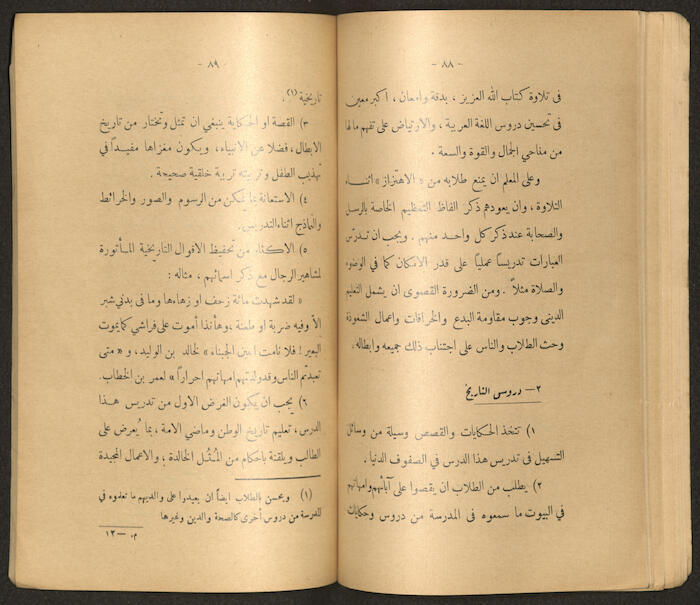 - ٨٨ -
فى تلاوة كتاب الله العزيز ، بدقة وامعان ، اكبر معين
فى تحسين دروس اللغة العربية ، والارتياض على تفهم مالها
من مناحي الجمال والقوة والسعة .
وعلى المعلم ان يمنع طلابه من « الاهتزاز » اثناء
التلاوة ، وان يعودهم ذكر الفاظ التعظيم الخاصة بالرسل
والصحابة عند ذكر كل واحد منهم . ويجب ان تدرّس
العبارات تدريساً عملياً على قدر الامكان كما في الوضوء
والصلاة مثلاً . ومن الضرورة القصوى ان يشمل التعليم
الدينى وجوب مقاومة البدع والخرافات واعمال الشعوذة
وحث الطلاب والناس على اجتناب ذلك جميعه وابطاله .
٢- دروس التاريخ
١) تتخذ الحكايات والقصص وسيلة من وسائل
التسهيل فى تدريس هذا الدرس في الصفوف الدنيا .
٢) يطلب من الطلاب ان يقصوا على آبائهم وامهاتهم
في البيوت ما سمعوه فى المدرسة من دروس وحكايات
- ٨٩ -
تاريخية (١) .
٣) القصة او الحكاية ينبغي ان تمثل وتختار من تاريخ
الابطال ، فضلا عن الانبياء ، ويكون مغزاها مفيداً في
تهذيب الطفل وتربيته تربية خلقية صحيحة .
٤) الاستعانة بما يمكن من الرسوم والصور والخرائط
والنماذج اثناء التدريس .
٥) الاكثار من تحفيظ الاقوال التاريخية المأثورة
لمشاهير الرجال مع ذكر اسمائهم ، مثاله :
« لقد شهدت مائة زحف او زهاءها وما فى بدني شبر
الاّ وفيه ضربة او طعنة ، وهأنذا أموت على فراشي كما يموت
البعير ! فلا نامت اعين الجبناء » لخالد بن الوليد ، و « متى
تعبدتم الناس وقد ولدتهم امهاتهم احراراً » لعمر بن الخطاب .
٦) يجب ان يكون الغرض الاول من تدريس هذا
الدرس ، تعليم تاريخ الوطن وماضي الامة ، بما يُعرض على
الطالب ويلقنة باحكام من المُثُل الخالدة ، والاعمال المجيدة
(١) ويحسن بالطلاب ايضاً ان يعيدوا على والديهم ما تعلموه في
المدرسة من دروس أخرى كالصحة والدين وغيرها
م. — ١٢